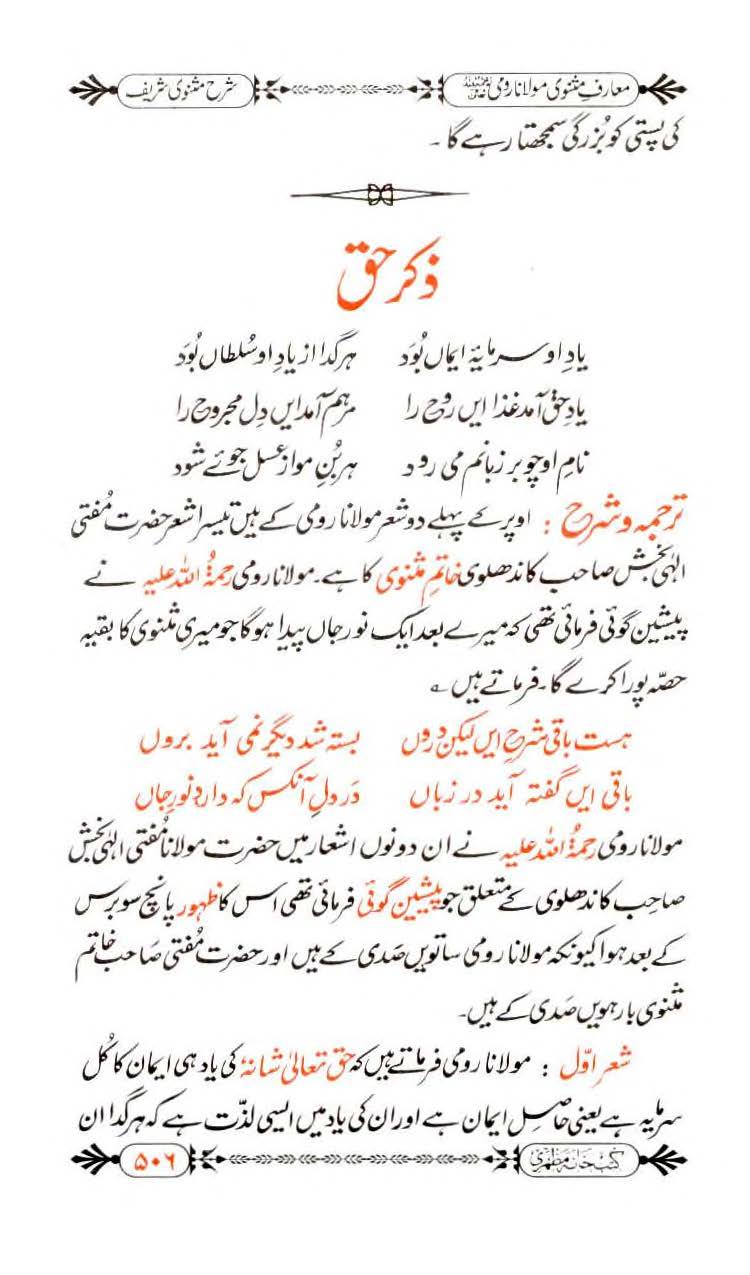 معارفِ مثنوی مولانا رومی شرح مثنوی شریف
کی پستی کو بُزرگی سمجھتا رہے گا ۔
ذکرِ حق
یادِ او سرمایۂ ایماں بُوَد ہر گدا از یادِ او سُلطاں بُوَد
یادِ حق آمد غذا ایں روح را مرہم آمد ایں دِل مجروح را
نامِ او چو بر زبانم می رود ہر بُنِ مو از عسل جوئے شود
ترجمہ و شرح : اوپر کے پہلے دو شعر مولانا رومی کے ہیں تیسرا شعر حضرت مُفتی
الٰہی بخش صاحب کاندھلوی خاتمِ مثنوی کا ہے۔ مولانا رومی رحمۃُ اللہ علیہ نے
پیشین گوئی فرمائی تھی کہ میرے بعد ایک نورِ جاں پیدا ہوگا جو میری مثنوی کا بقیہ
حصّہ پورا کرے گا ۔ فرماتے ہیں ؎
ہست باقی شرحِ ایں لیکن دروں بستہ شد دیگر نمی آید بروں
باقی ایں گفتہ آید در زباں در دلِ آنکس کہ دارد نورِ جاں
مولانا رومی رحمۃُ اللہ علیہ نے ان دونوں اشعار میں حضرت مولانا مُفتی الٰہی بخش
صاحِب کاندھلوی کے متعلق جو پیشین گوئی فرمائی تھی اس کا ظہور پانچ سو برس
کے بعد ہوا کیونکہ مولانا رومی ساتویں صَدی کے ہیں اور حضرت مُفتی صَاحب خاتم
مثنوی بارہویں صَدی کے ہیں۔
شعر اوّل : مولانا رومی فرماتے ہیں کہ حق تعالیٰ شانہٗ کی یاد ہی ایمان کا کُل
سرمایہ ہے یعنی حاصِل ایمان ہے اور ان کی یاد میں ایسی لذّت ہے کہ ہر گدا ان
کُتب خَانہ مَظہری ۵۰۶